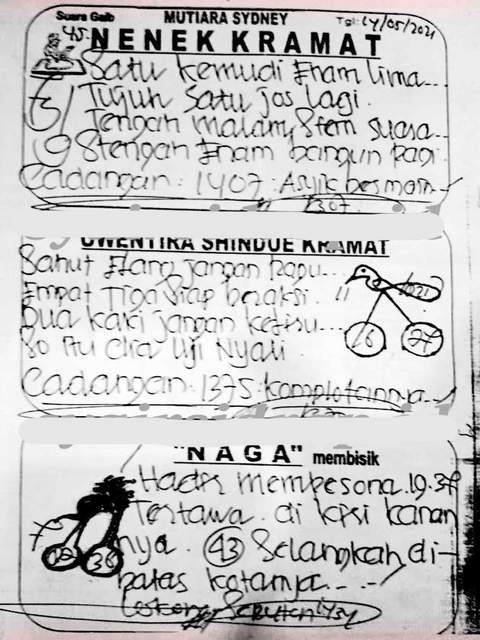 Suara Gaib MUTIARA SYDNEY Tgl: 14/05/2021
45. NENEK KRAMAT
Satu kemudi Enam lima...
Tujuh Satu jos lagi.
Tengah malam, Stem suara...
Stengah Enam bangun pagi
Cadangan: 1407: Asyik bermain
1307
UWENTIRA SHINDUE KRAMAT
Sahut jangan
Empat Tiga Siap beraksi. "
Dua kaki jangan
80 Itu Dia Uji Nyali
16
Cadangan: 1375: komplotannya...
"NAGA" membisik
Hadir mempesona. 19.37
Tertawa di kisi kanan
nya. 43 Selangkah di-
batas kotamja....
36